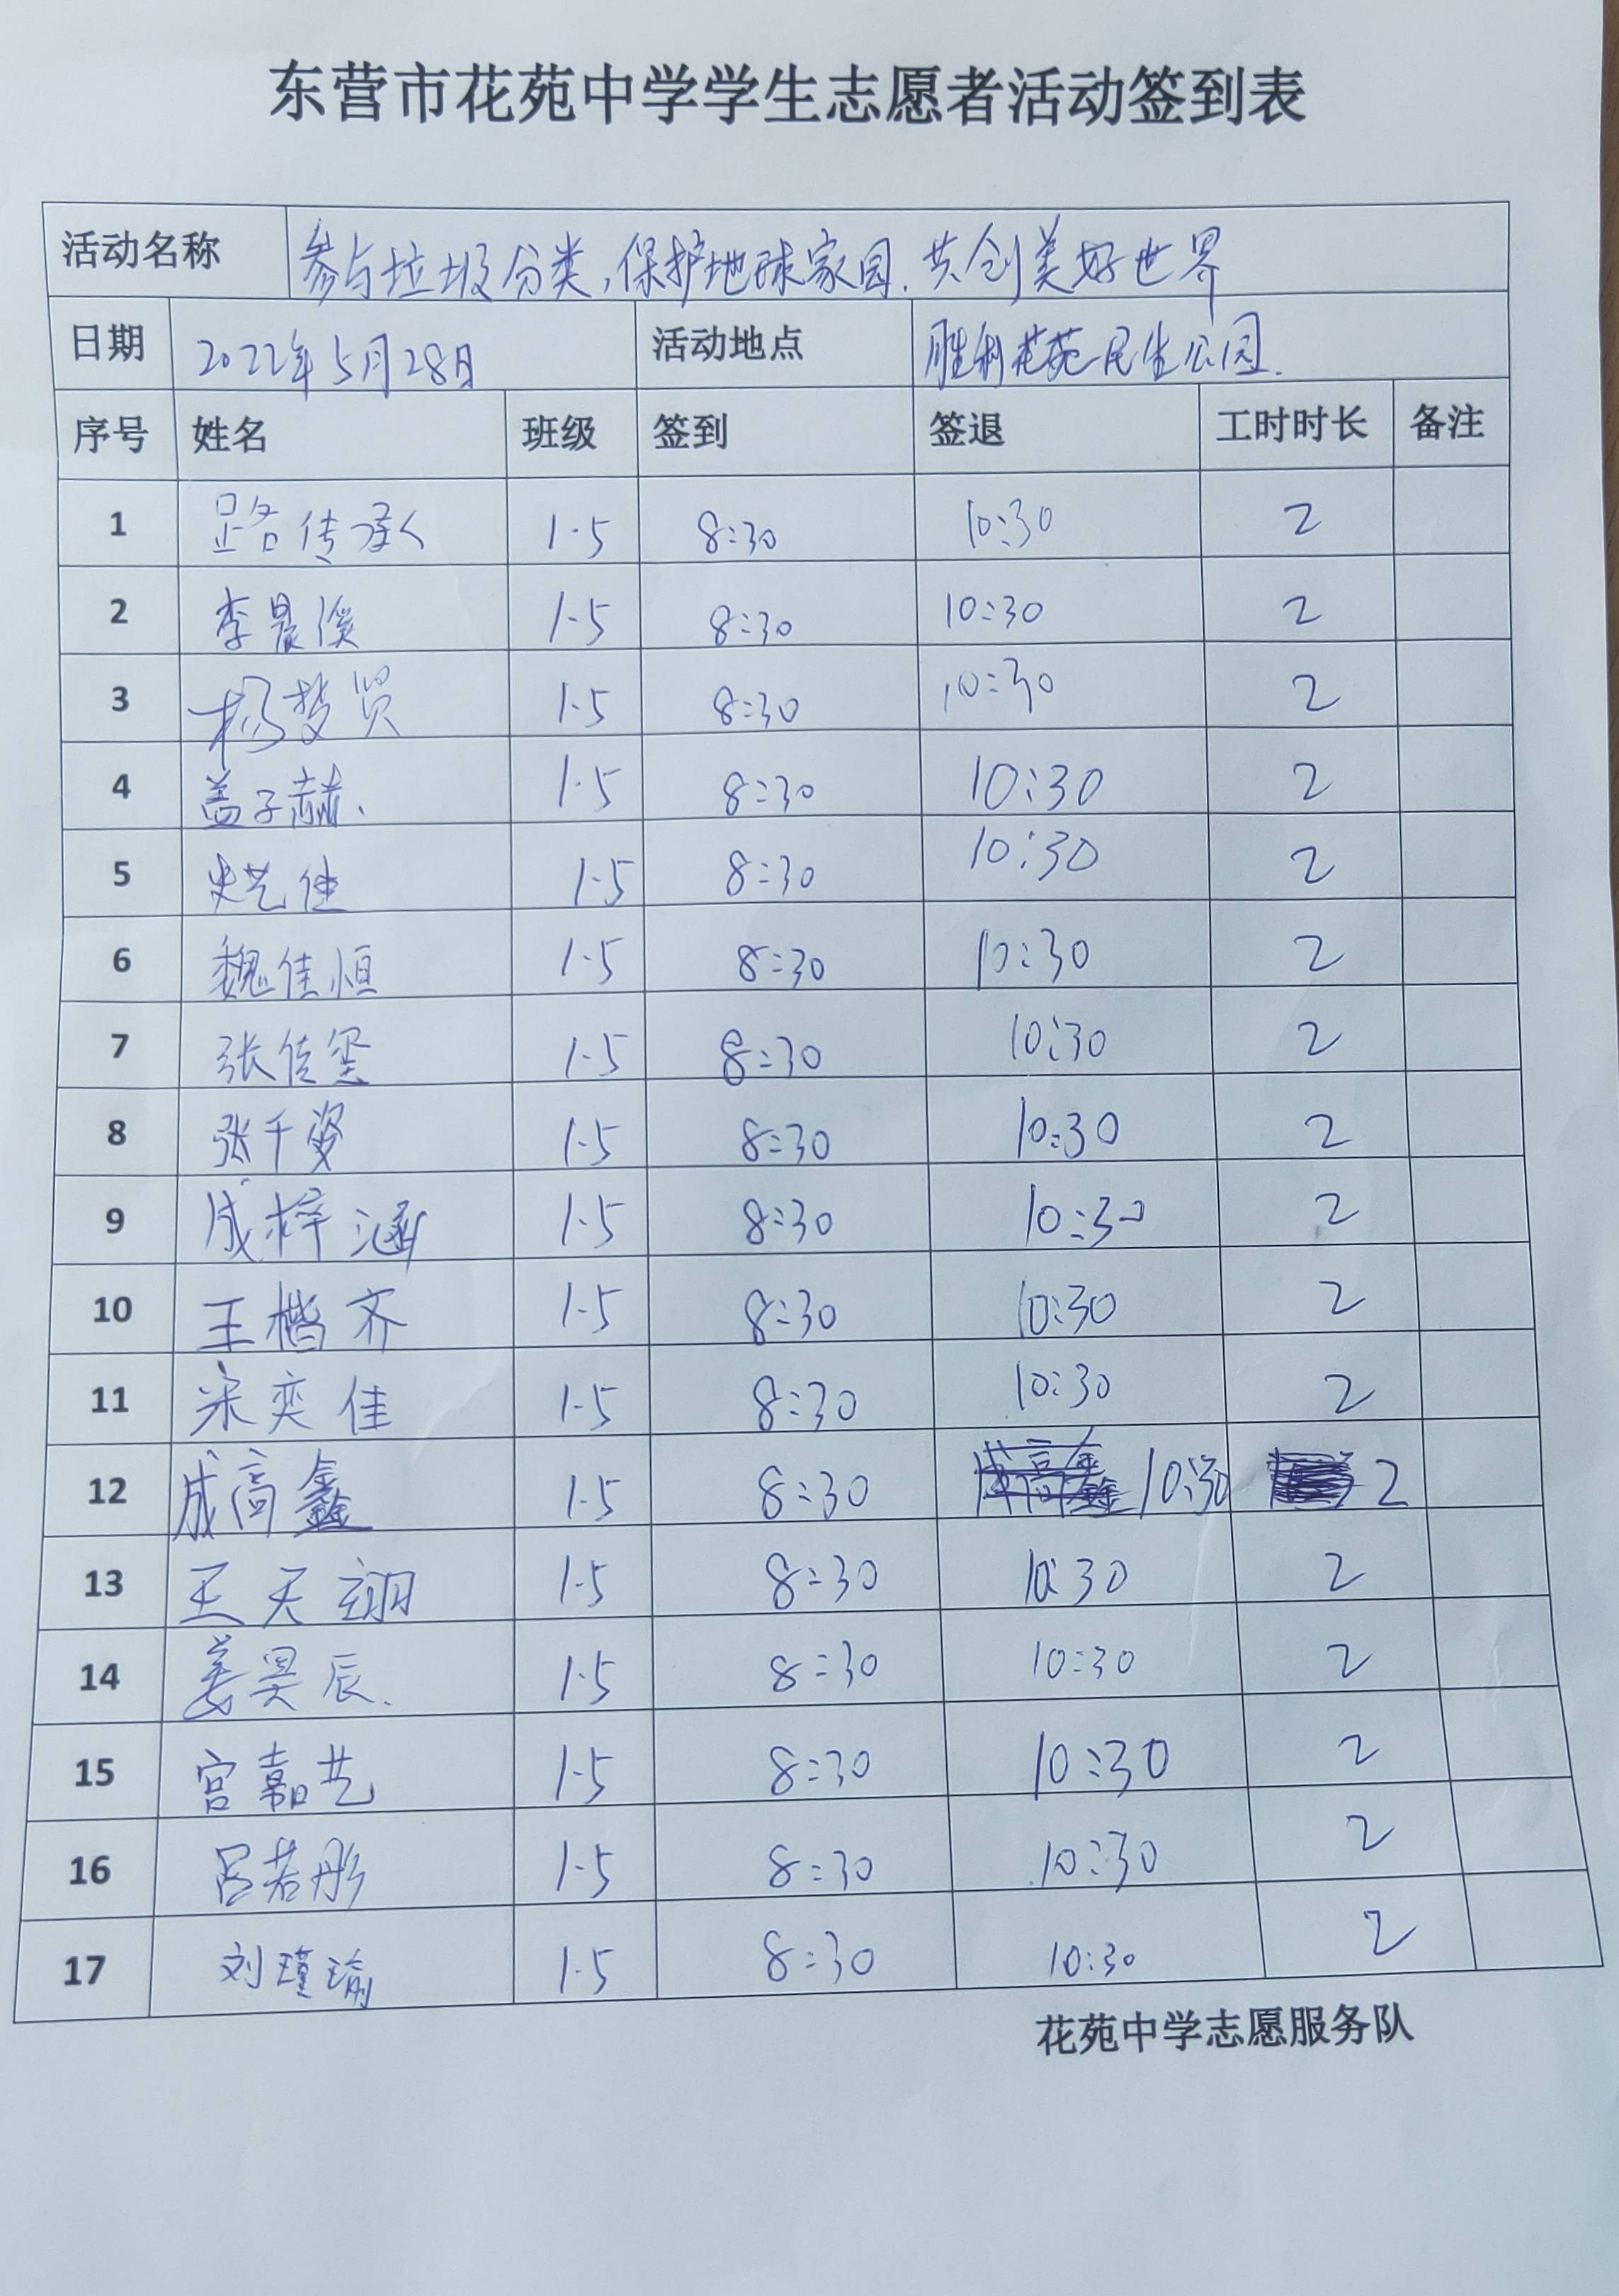 东营市花苑中学学生志愿者活动签到表
活动名称 参与垃圾分类,保护地球家园.共创美好世界
日期 2022年5月28日 活动地点 胜利花苑民生公园.
序号 姓名 班级 签到 签退 工时时长 备注
1 路传承 1-5 8:30 10:30 2
2 李晨溪 1-5 8:30 10:30 2
3 杨梦贤 1-5 8:30 10:30 2
4 盖子赫 1-5 8:30 10:30 2
5 史艺佳 1-5 8:30 10:30 2
6 魏佳恒 1-5 8:30 10:30 2
7 张佳 1-5 8:30 10:30 2
8 张千姿 1-5 8:30 10:30 2
9 成梓涵 1-5 8:30 10:30 2
10 王楷齐 1-5 8:30 10:30 2
11 宋奕佳 1-5 8:30 10:30 2
12 成高鑫 1-5 8:30 成高鑫 10:30 2
13 王天翊 1-5 8:30 10:30 2
14 姜昊辰. 1-5 8:30 10:30 2
15 宫嘉艺 1-5 8:30 10:30 2
16 吕若彤 1-5 8:30 10:30 2
17 刘瑾瑜 1-5 8:30 10:30 2
花苑中学志愿服务队